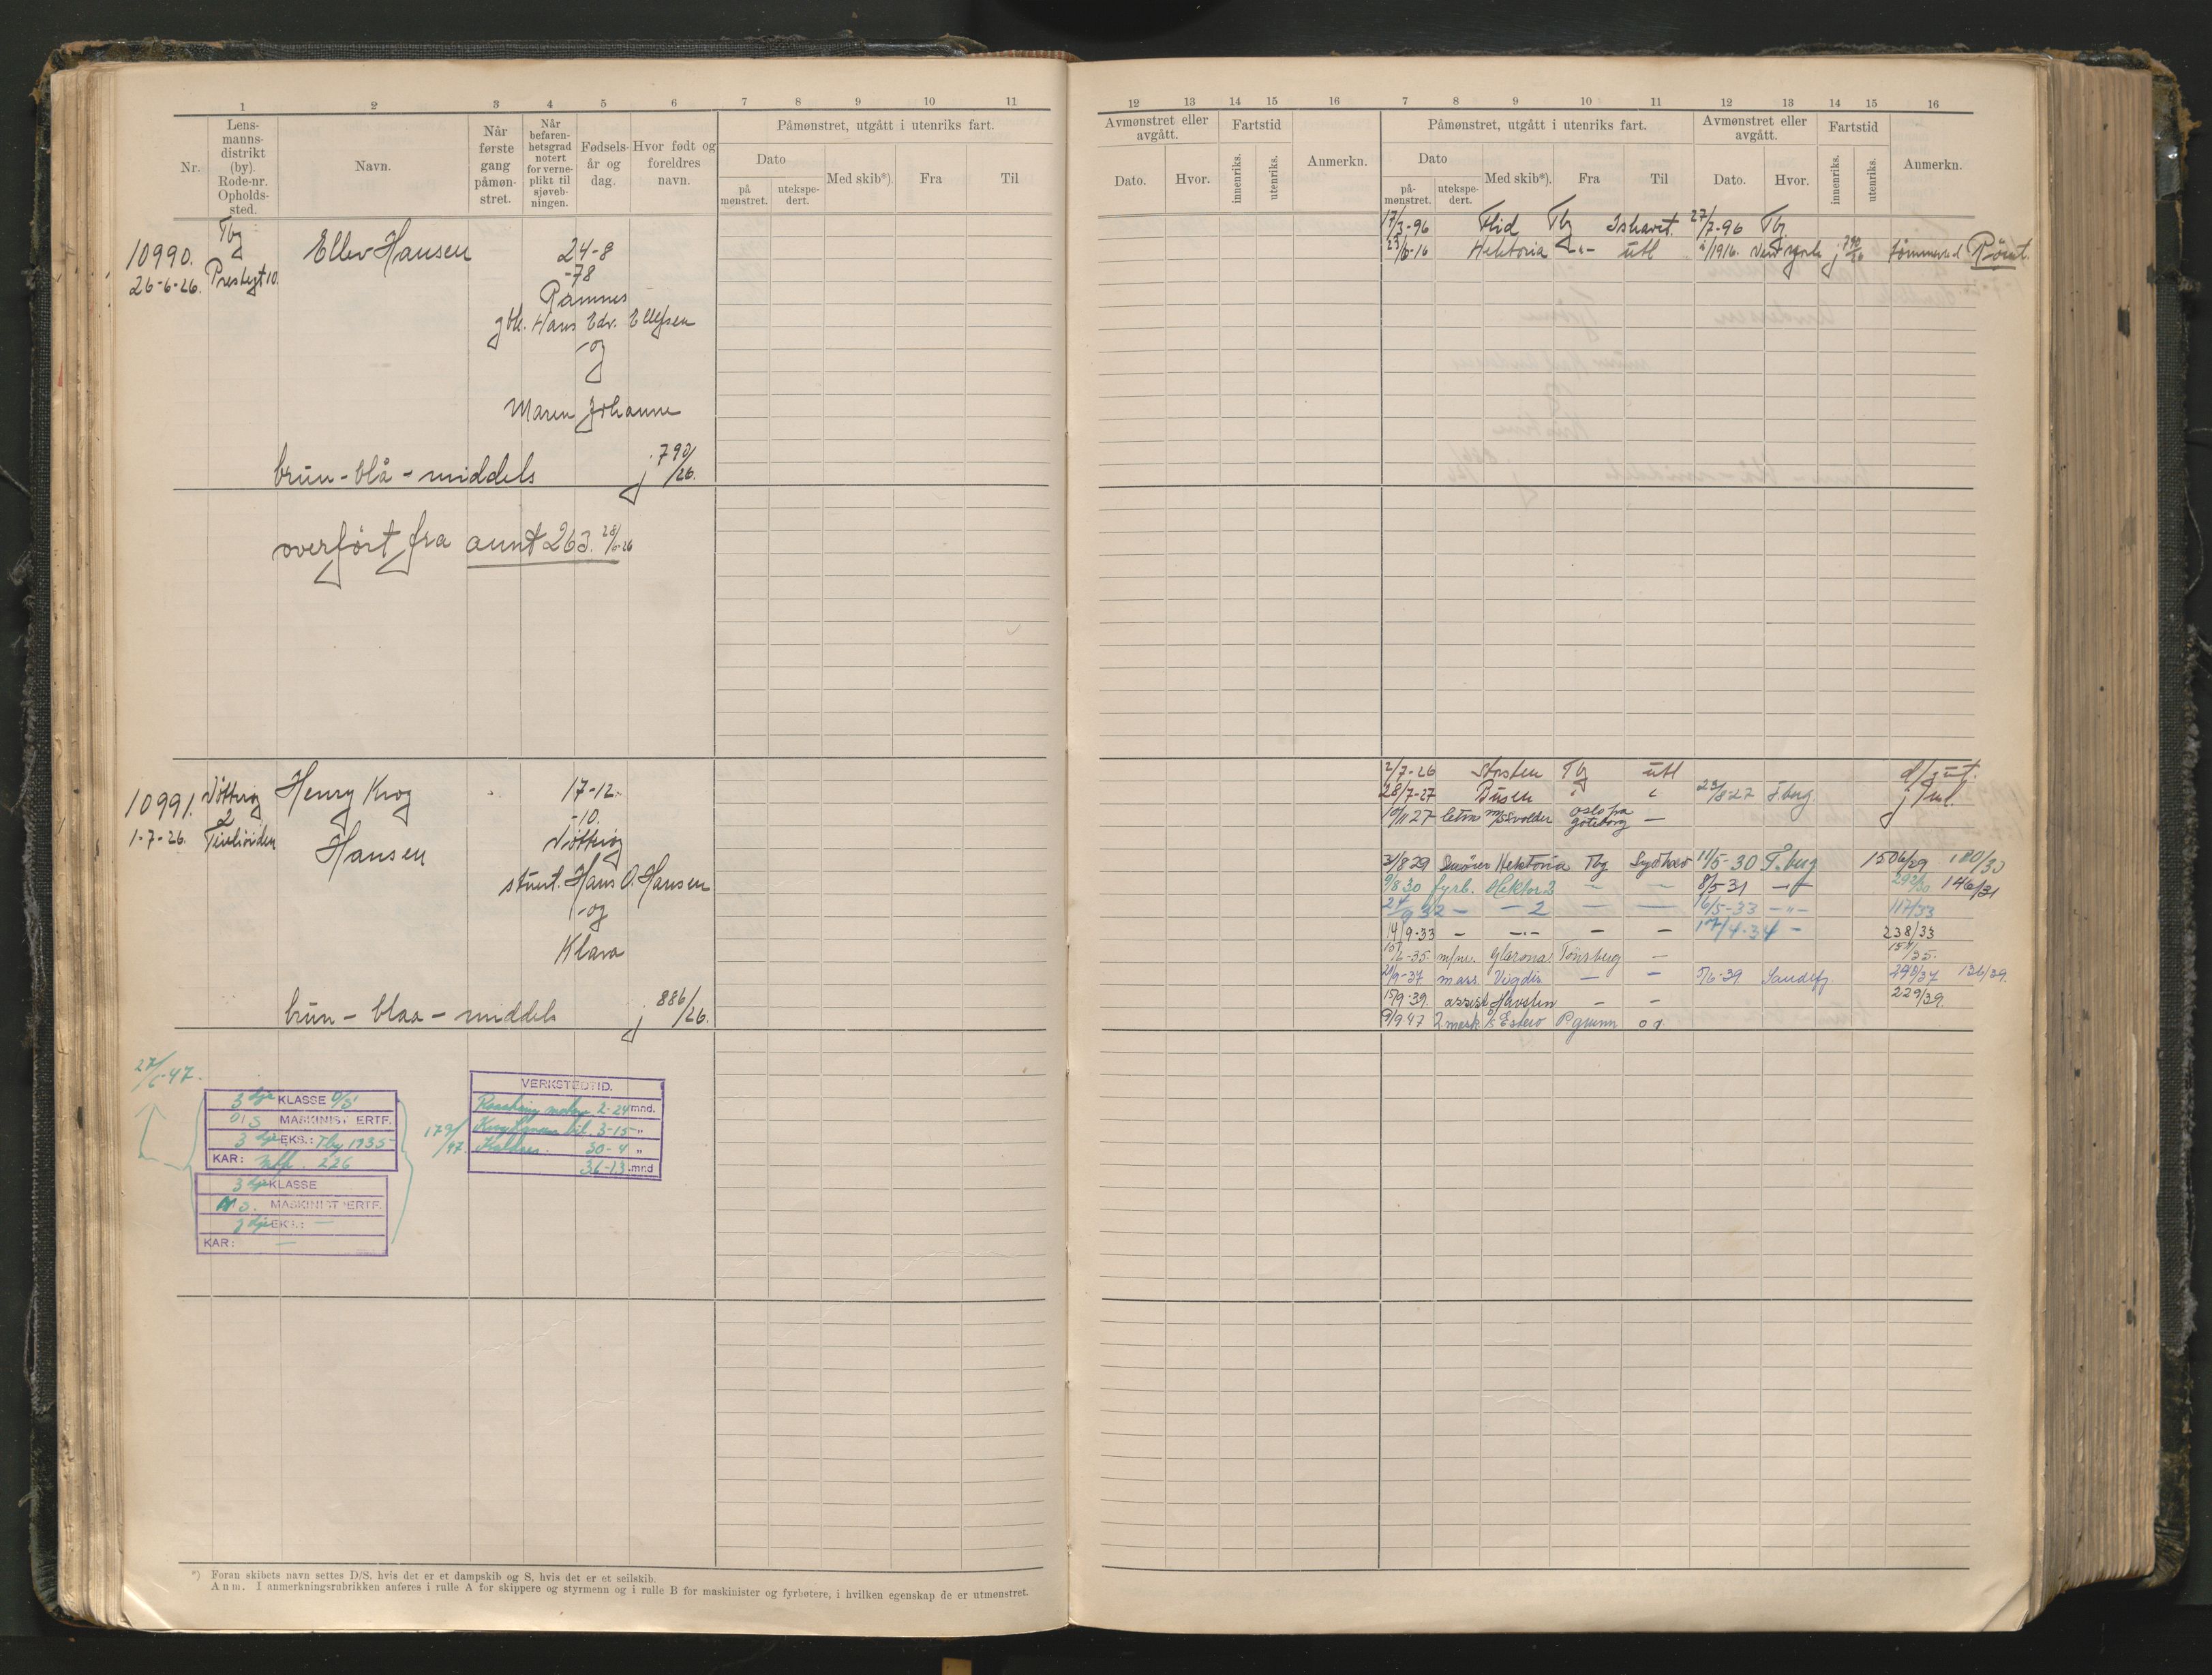 1 2 3 4 5 6 7 8 9 10 11
Nr.
Lens-
manns-
distrikt
(by).
Rode-nr.
Opholds-
sted.
Navn.
Når
første
gang
påmøn-
stret.
Når
befaren-
hetsgrad
notert
for verne-
plikt til
sjøveb-
ningen.
Fødsels-
år og
dag.
Hvor født og
foreldres
navn.
Påmønstret, utgått i utenriks fart.
Dato
på
mønstret.
utekspe-
dert.
Med skib*).
Fra
Til
Tbg
10990. Ellev Hansen 24-8
26-6-26. Prestegt 10. -78
Ramnes
gbr. Hans Edv. Ellefsen
-og
Maren Johanne
brun - blå - middels j. 790/26.
overført fra annt 263. 28/6-26
10991. Nøtterøy Henry Krog 17-12-
2 -10.
1-7-26. Hansen Nøtterøy
stuert. Hans O. Hansen
-og
Klara
brun - blaa - middels j 886/26.
27/6-47.
3dje KLASSE D/S
D/S MASKINIST ERTF.
3dje EKS.: Tbg 1935
KAR: 226
3dje KLASSE
M S. MASKINIST ERTF.
3dje EKS.: —
KAR: —
173/47.
VERKSTEDTID.
2-24 mnd.
bil. 3-15 "
Kaldnes. 30-4 "
36-13 mnd
*) Foran skibets navn settes D/S, hvis det er et dampskib og S, hvis det er et seilskib.
Anm. I anmerkningsrubrikken anføres i rulle A for skippere og styrmenn og i rulle B for maskinister og fyrbøtere, i hvilken egenskap de er utmønstret.
12 13 14 15 16 7 8 9 10 11 12 13 14 15 16
Avmønstret eller
avgått.
Dato.
Hvor.
Fartstid
innenriks.
utenriks.
Anmerkn.
Påmønstret, utgått i utenriks fart.
Dato
på-
mønstret.
utekspe-
dert.
Med skib*).
Fra
Til
Avmønstret eller
avgått.
Dato.
Hvor.
Fartstid
innenriks.
utenriks.
Anmerkn.
17/3-96 Flid Tbg Ishavet. 27/7-96 Tbg
23/6-16 Hektoria -"- utl /1916. New York j 790/26 tømmerm. Rømt.
2/7-26 Storsten Tbg utl d/gut.
28/7-27 Busen " " 23/8-27 T.berg.
10/11 27 letm m/s Svolder Oslo fra
Gøteborg —
31/8 29 Hektoria Tbg Sydhav 11/5-30 T.berg 1506/29 180/30
9/8 30 fyrb. Hektor 2 — — 8/5 31 -"- 292/30 146/31
24/9 32 — — 2 — — 16/5-33 -"- 117/33
14/9-33 — -"- — — 17/4-34 — 238/33
10/6-35 Glarona Tønsberg — 151/35.
20/9-37 mass. Vigdis — — 5/6-39 Sandefj. 290/37 136/39.
15/9-39. assist Havsten — — 229/39.
9/9 47 2 mask. Estero P.grunn